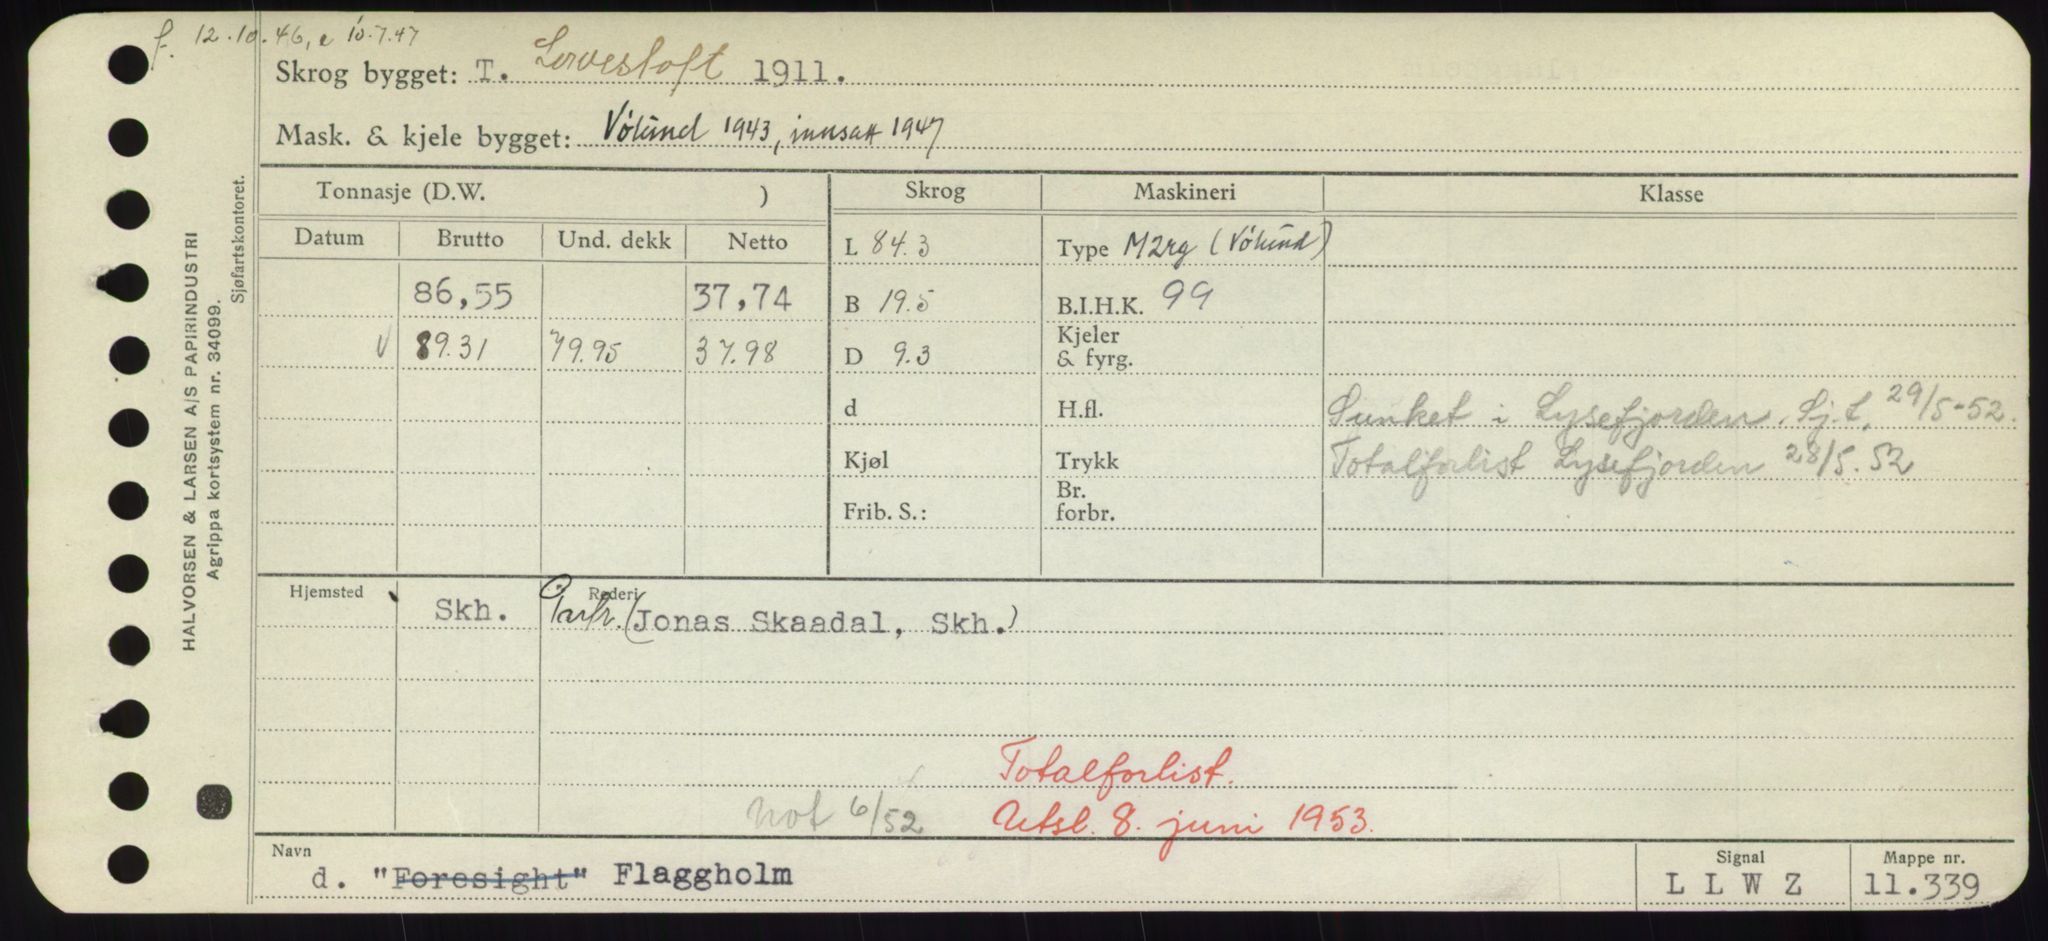 f. 12.10.46, e 10.7.47
Skrog bygget: T. Lowestoft 1911.
Mask. & kjele bygget: Vølund 1943, innsatt 1947
Tonnasje (D.W. ) Skrog Maskineri Klasse
Datum Brutto Und. dekk Netto L 84.3 Type M2rg (Vølund)
86,55 37,74 B 19.5 B.I.H.K. 99
V 89.31 79.95 37.98 D 9.3 Kjeler & fyrg.
d H.fl. Sunket i Lysefjorden. Sj.t. 29/5-52.
Kjøl Trykk Totalforlist Lysefjorden 28/5.52
Frib. S.: Br. forbr.
Hjemsted Rederi
Skh. Partr. (Jonas Skaadal, Skh.)
Totalforlist.
not 6/52 Utsl. 8. juni 1953.
Navn Signal Mappe nr.
d. "Foresight" Flaggholm L L W Z 11.339
HALVORSEN & LARSEN A/S PAPIRINDUSTRI
Agrippa kortsystem nr. 34099.
Sjøfartskontoret.